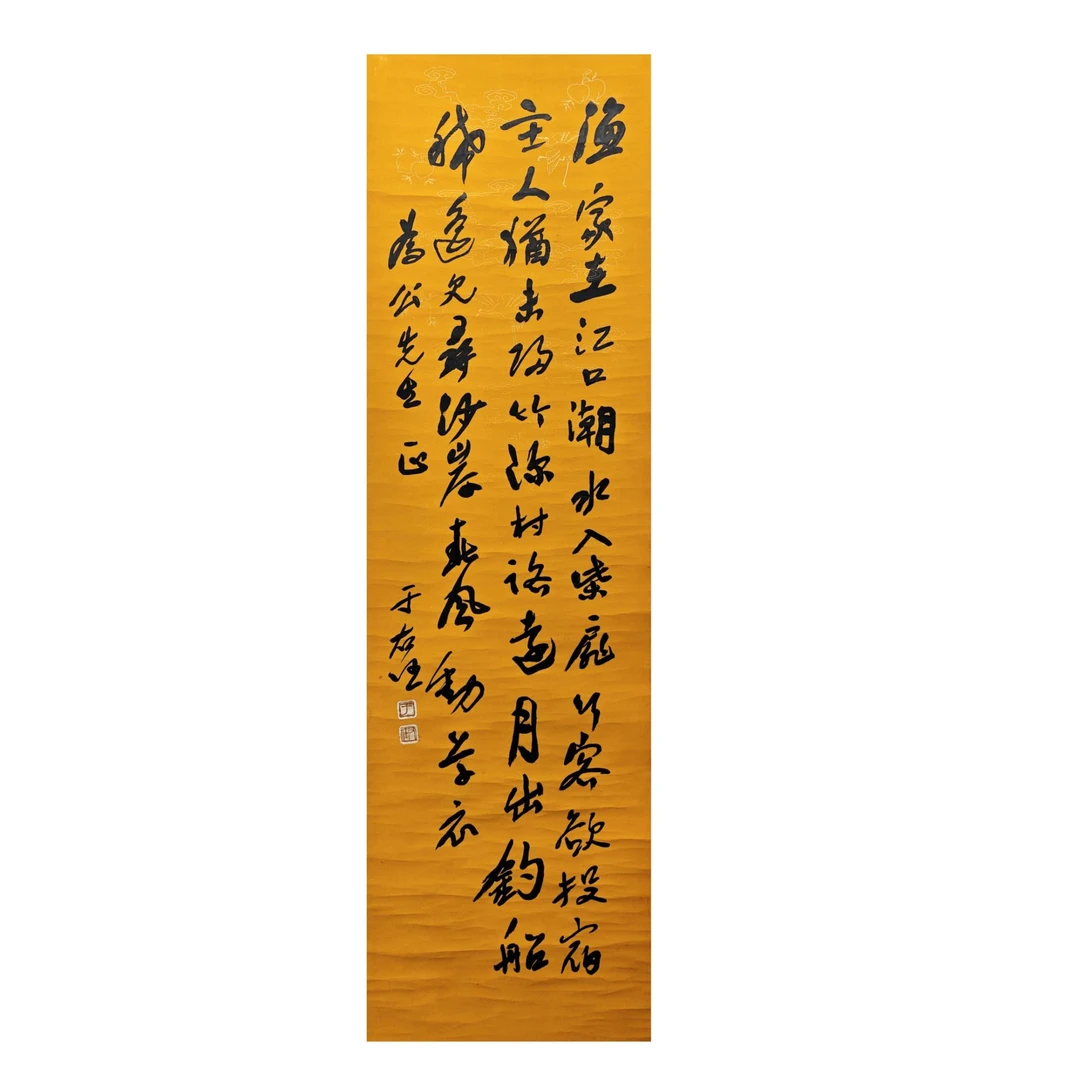 漁家在江口潮水入柴扉行客欲投宿
主人猶未歸竹深村路遠月出釣船
稀遙見尋沙岸春風動草衣
為公先生正
于右任